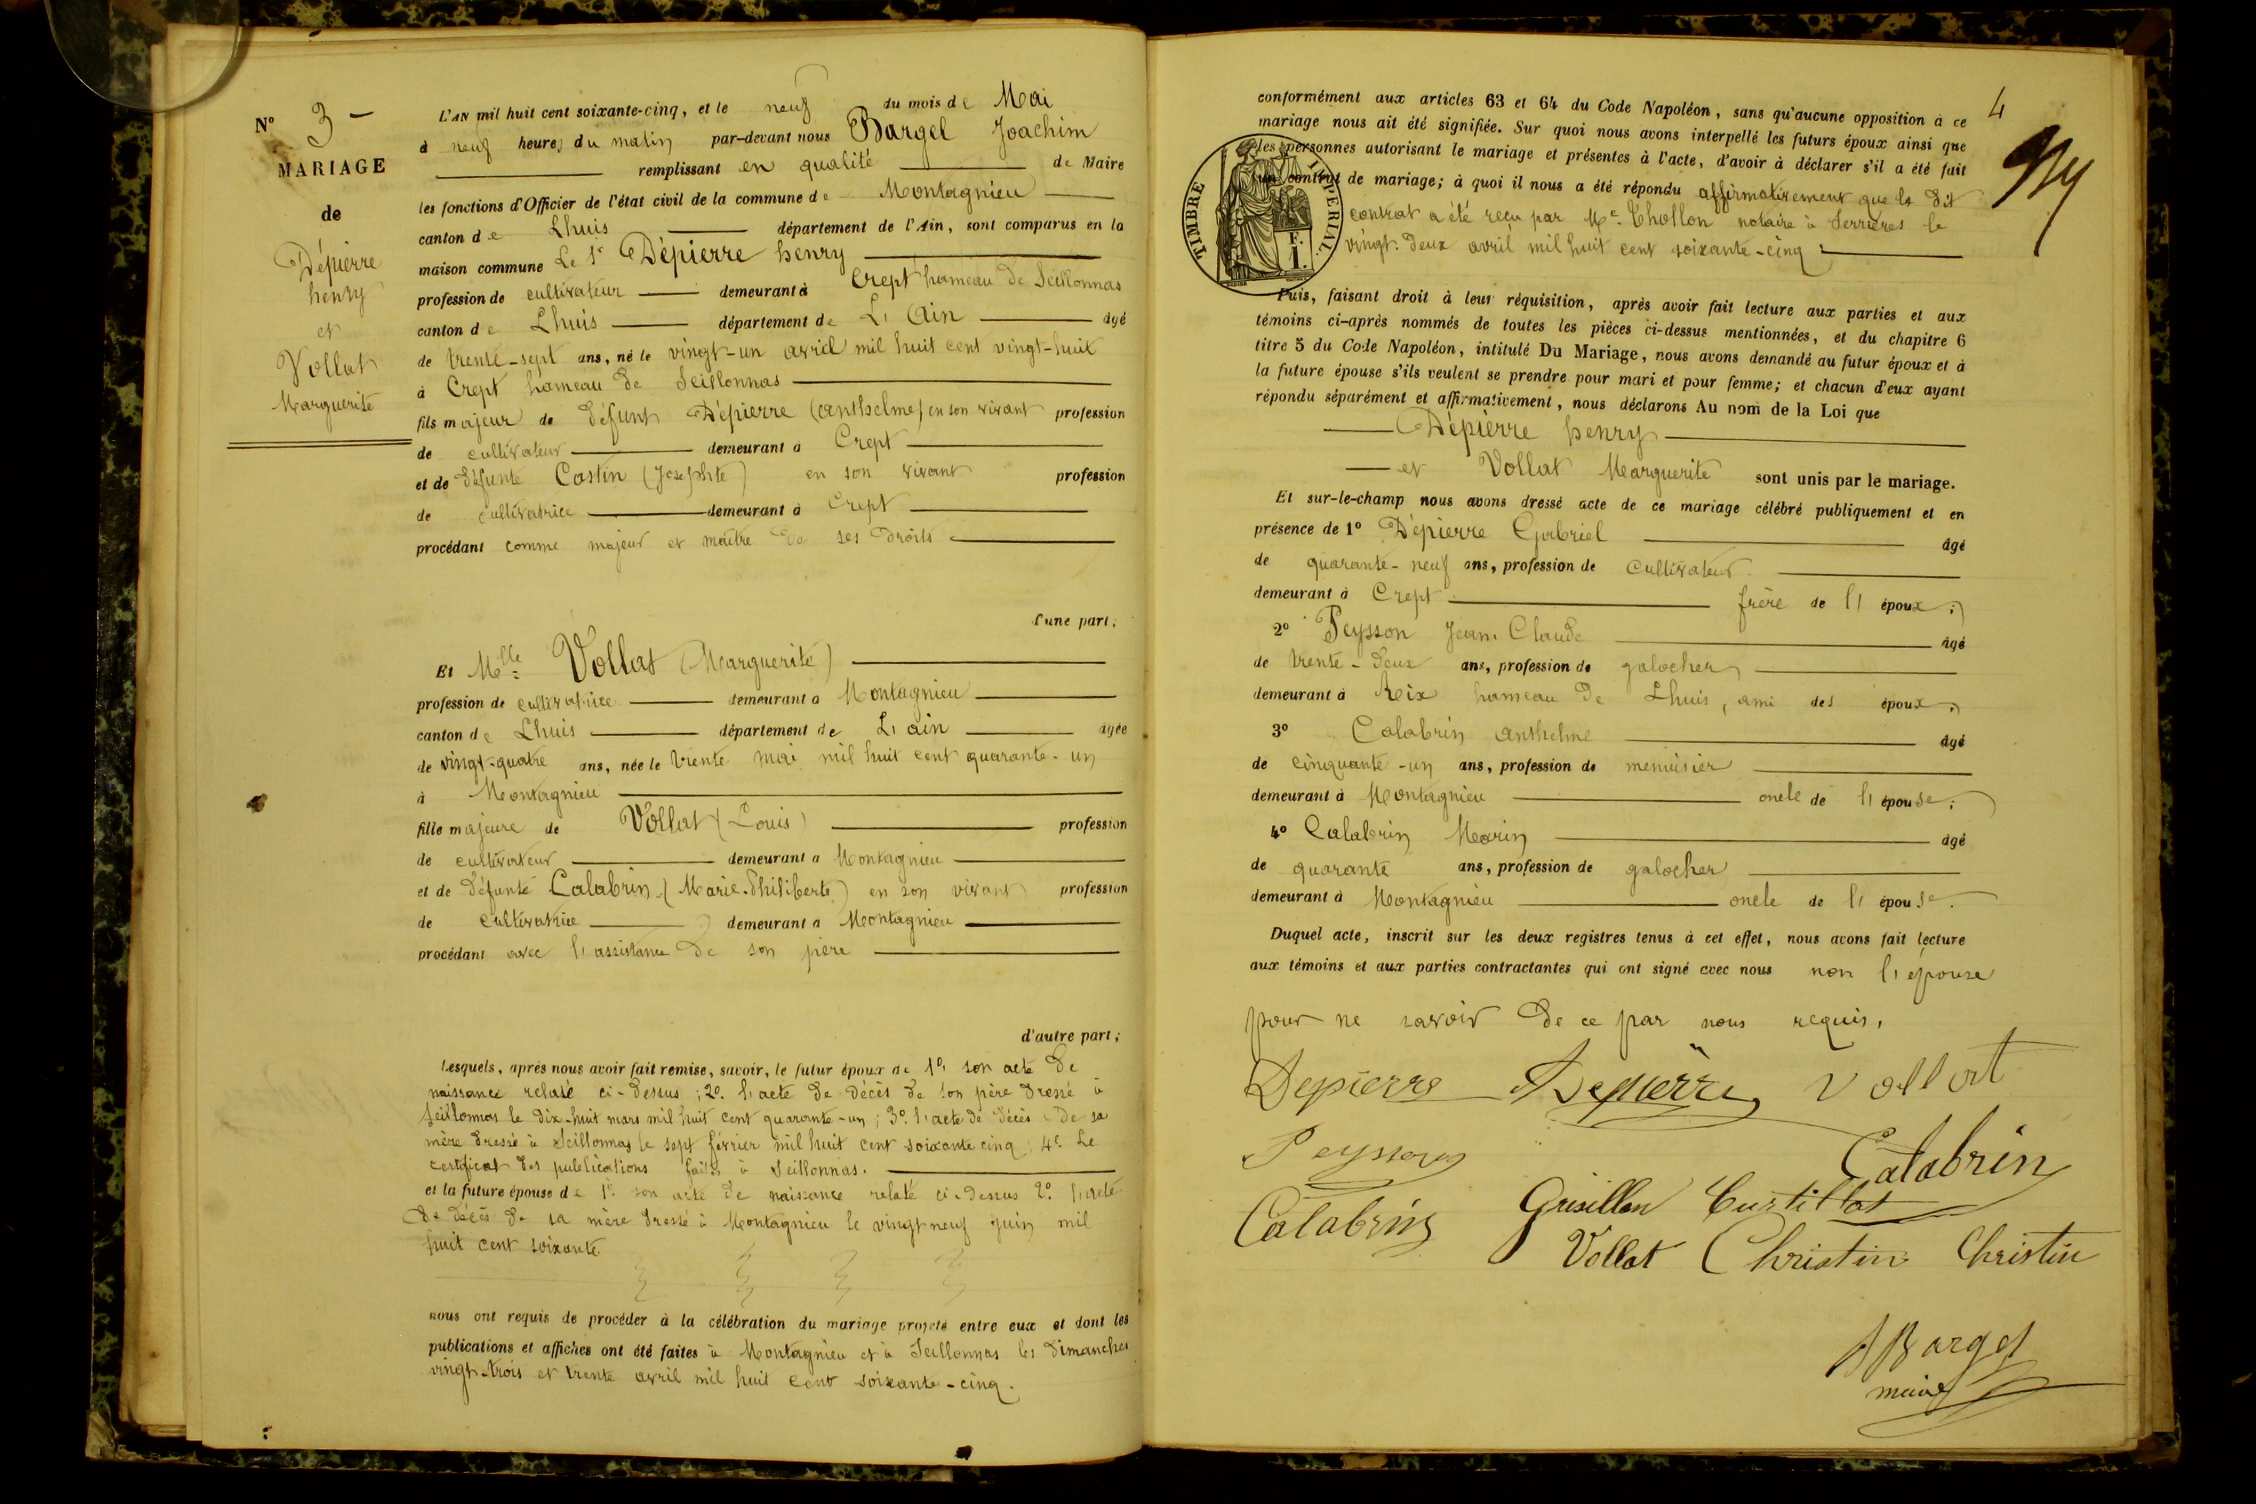 N° 3 -
MARIAGE
de
Dépierre
henry
et
Vollat
Marguerite
L'AN mil huit cent soixante-cinq, et le neuf du mois de Mai
à neuf heures du matin par-devant nous Bargel Joachim
remplissant en qualité de Maire
les fonctions d'Officier de l'état civil de la commune de Montagnieu
canton de Lhuis département de l'Ain, sont comparus en la
maison commune Le Sr Dépierre henry
profession de cultivateur demeurant à Crept hameau de Seillonnas
canton de Lhuis département de L'Ain âgé
de trente-sept ans, né le vingt-un avril mil huit cent vingt-huit
à Crept hameau de Seillonnas
fils majeur de défunt Dépierre (anthelme) en son vivant profession
de cultivateur demeurant à Crept
et de défunte Costin (Josephte) en son vivant profession
de cultivatrice demeurant à Crept
procédant comme majeur et maître de ses droits
d'une part;
Et Mlle Vollat (Marguerite)
profession de cultivatrice demeurant à Montagnieu
canton de Lhuis département de L'ain âgée
de vingt-quatre ans, née le trente mai mil huit cent quarante-un
à Montagnieu
fille majeure de Vollat (Louis) profession
de cultivateur demeurant à Montagnieu
et de défunte Calabrin (Marie-Philiberte) en son vivant profession
de cultivatrice demeurant à Montagnieu
procédant avec l'assistance de son père
d'autre part;
Lesquels, après nous avoir fait remise, savoir, le futur époux de 1° son acte de
naissance relaté ci-dessus; 2° l'acte de décès de son père dressé à
Seillonnas le dix-huit mars mil huit cent quarante-un; 3° l'acte de décès de sa
mère dressé à Seillonnas le sept février mil huit cent soixante cinq; 4° Le
certificat des publications faites à Seillonnas.
et la future épouse de 1° son acte de naissance relaté ci-dessus 2° l'acte
de décès de sa mère dressé à Montagnieu le vingt neuf juin mil
huit cent soixante
nous ont requis de procéder à la célébration du mariage projeté entre eux et dont les
publications et affiches ont été faites à Montagnieu et à Seillonnas les dimanches
vingt-trois et trente avril mil huit cent soixante-cinq.
4
conformément aux articles 63 et 64 du Code Napoléon, sans qu'aucune opposition à ce
mariage nous ait été signifiée. Sur quoi nous avons interpellé les futurs époux ainsi que
les personnes autorisant le mariage et présentes à l'acte, d'avoir à déclarer s'il a été fait
un contrat de mariage; à quoi il nous a été répondu affirmativement que le dit
contrat a été reçu par Me Thollon notaire à Serrières le
vingt-deux avril mil huit cent soixante-cinq
TIMBRE IMPERIAL.
F.
1.
Puis, faisant droit à leur réquisition, après avoir fait lecture aux parties et aux
témoins ci-après nommés de toutes les pièces ci-dessus mentionnées, et du chapitre 6
titre 5 du Code Napoléon, intitulé Du Mariage, nous avons demandé au futur époux et à
la future épouse s'ils veulent se prendre pour mari et pour femme; et chacun d'eux ayant
répondu séparément et affirmativement, nous déclarons Au nom de la Loi que
Dépierre henry
et Vollat Marguerite sont unis par le mariage.
Et sur-le-champ nous avons dressé acte de ce mariage célébré publiquement et en
présence de 1° Dépierre Gabriel âgé
de quarante-neuf ans, profession de cultivateur
demeurant à Crept frère de l'époux;
2° Peysson Jean Claude âgé
de trente-deux ans, profession de galocher
demeurant à Rix hameau de Lhuis, ami des époux;
3° Calabrin anthelme âgé
de cinquante-un ans, profession de menuisier
demeurant à Montagnieu oncle de l'épouse;
4° Calabrin Marin âgé
de quarante ans, profession de galocher
demeurant à Montagnieu oncle de l'épouse.
Duquel acte, inscrit sur les deux registres tenus à cet effet, nous avons fait lecture
aux témoins et aux parties contractantes qui ont signé avec nous non l'épouse
pour ne savoir de ce par nous requis.
Depierre Depierre Vollat
Peysson Calabrin
Calabrin Grisillon Curtillat
Vollat Christin Christin
JBargel
maire